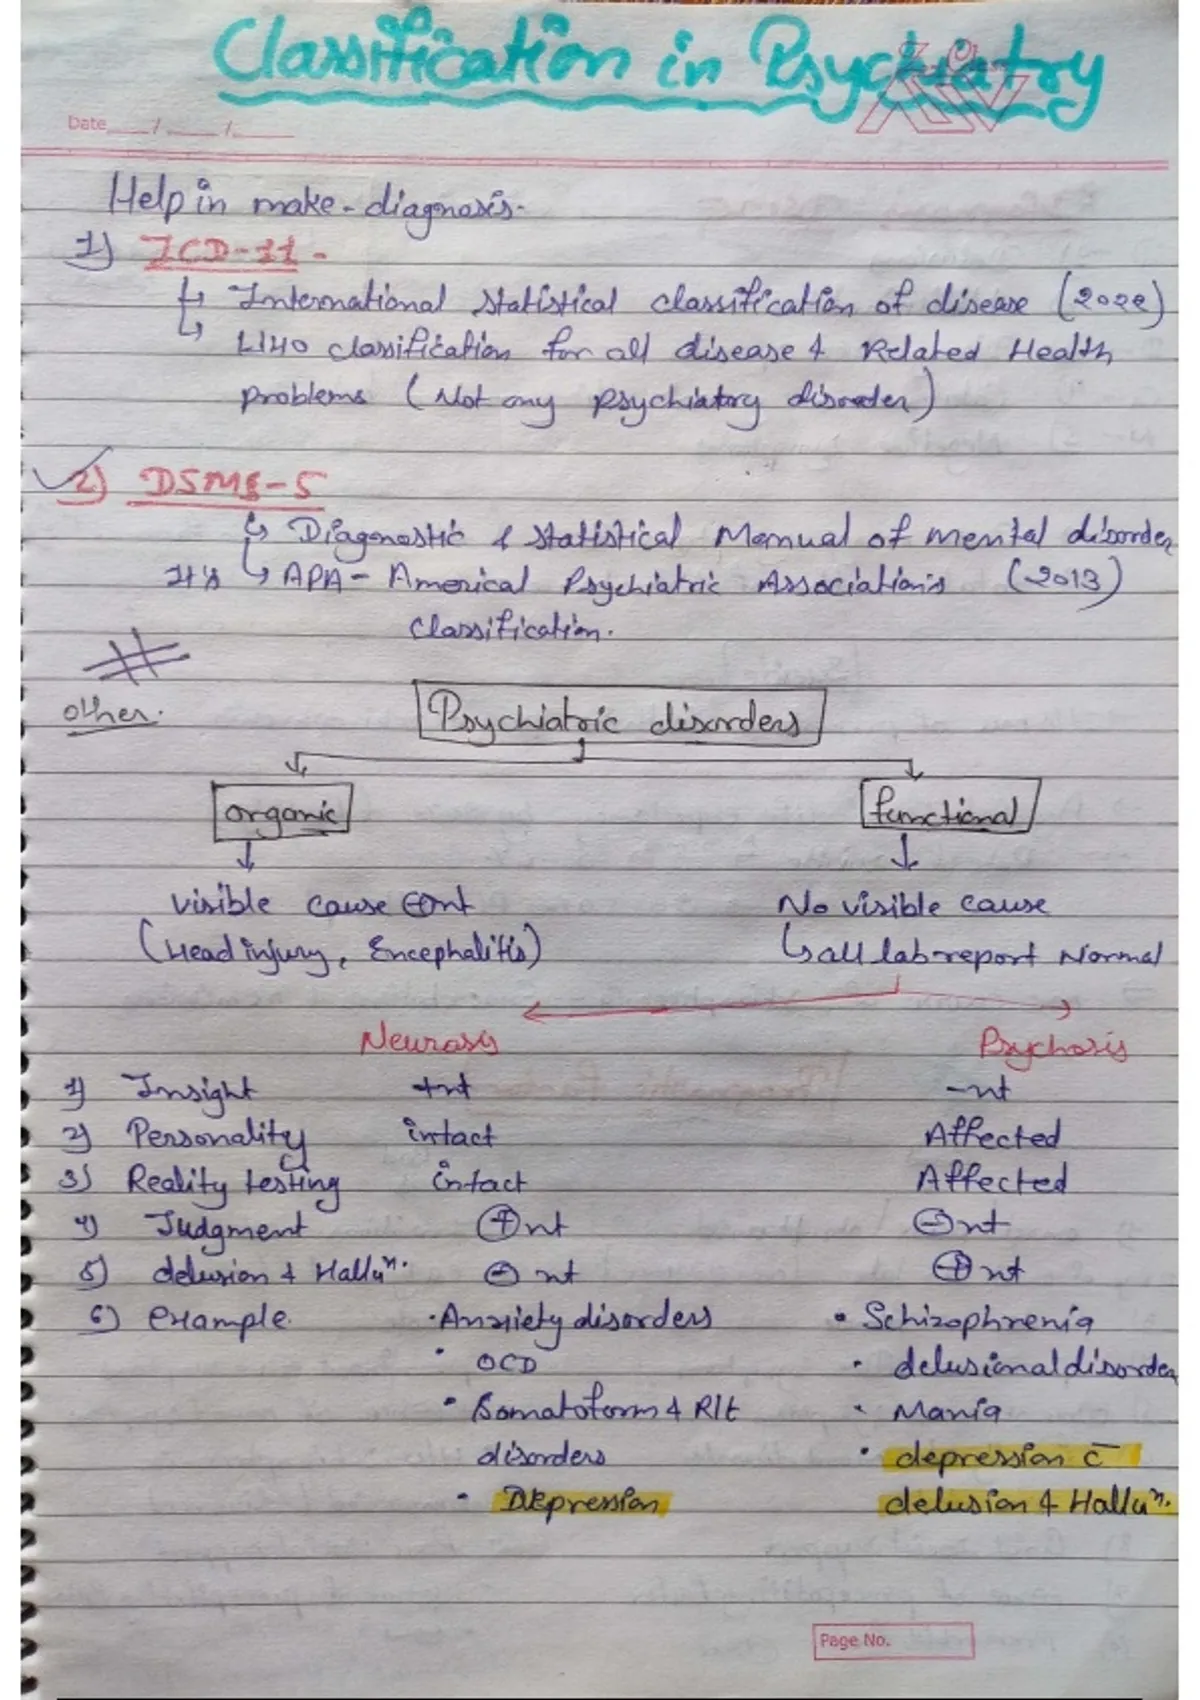 Classification in Psychiatry
Date___/___/___
Help in make-diagnosis-
1) ICD-11-
↳ International statistical classification of disease (2022)
↳ WHO classification for all disease & Related Health
problems (Not any psychiatory disorder)
2) DSM5-5
↳ Diagonastic & statistical Manual of mental disorder
It's ↳ APA - Americal Psychiatric Association's (2013)
classification.
#
other.
Psychiatric disorders
organic functional
visible cause ⊕nt No visible cause
(Head injury, Encephalitis) ↳ all lab report Normal
Neurosis Psychosis
1) Insight +nt -nt
2) Personality intact Affected
3) Reality testing intact Affected
4) Judgment ⊕nt ⊖nt
5) delusion & Halluⁿ. ⊖nt ⊕nt
6) example. • Anxiety disorders • Schizophrenia
• OCD • delusional disorder
• Somatoform & Rlt • Mania
disorders • depression c̄
• Depression delusion & Halluⁿ.
Page No.